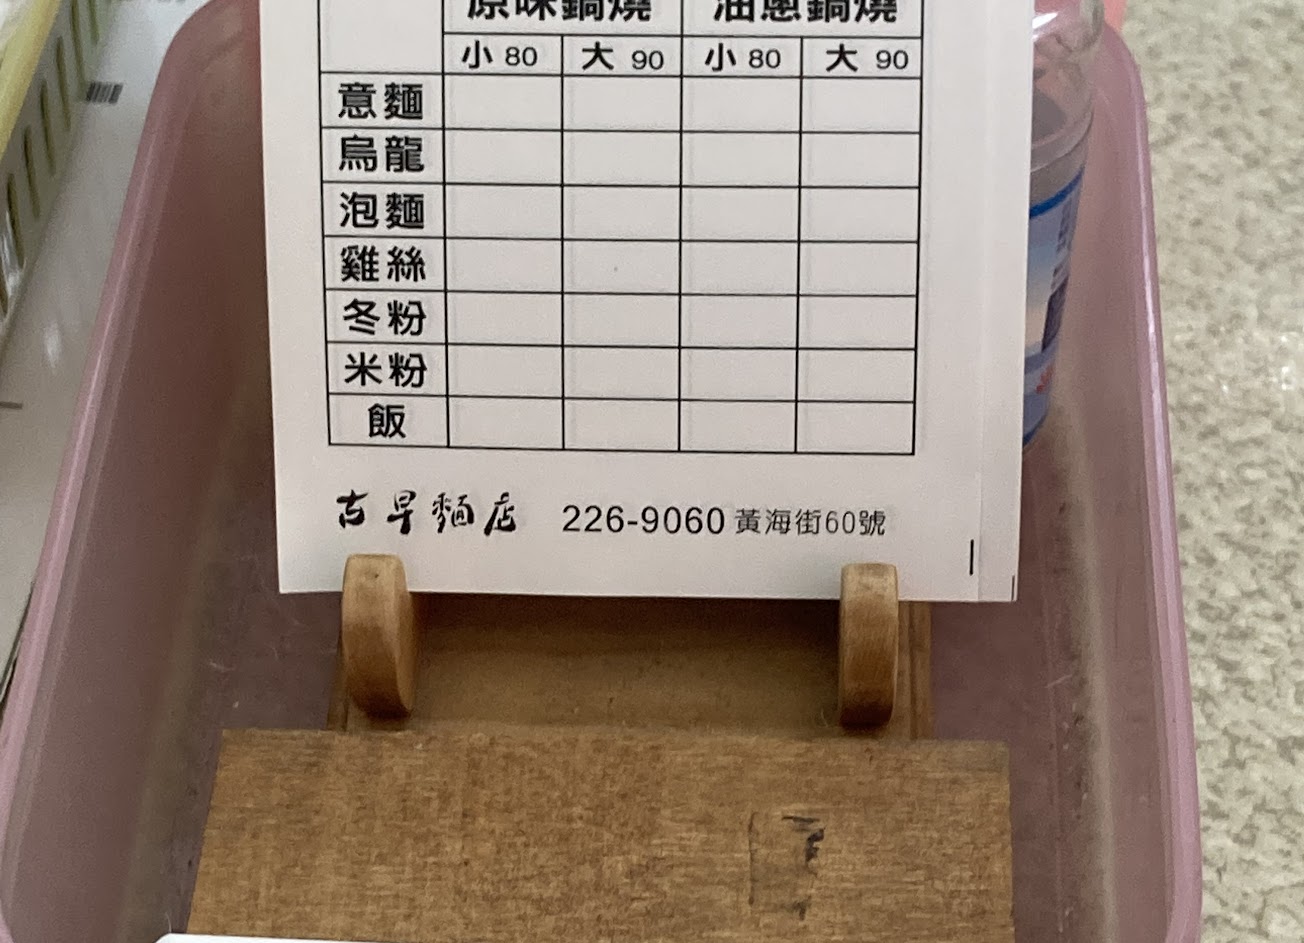 原味鍋燒 油蔥鍋燒
小 80 大 90 小 80 大 90
意麵
烏龍
泡麵
雞絲
冬粉
米粉
飯
古早麵店 226-9060 黃海街60號